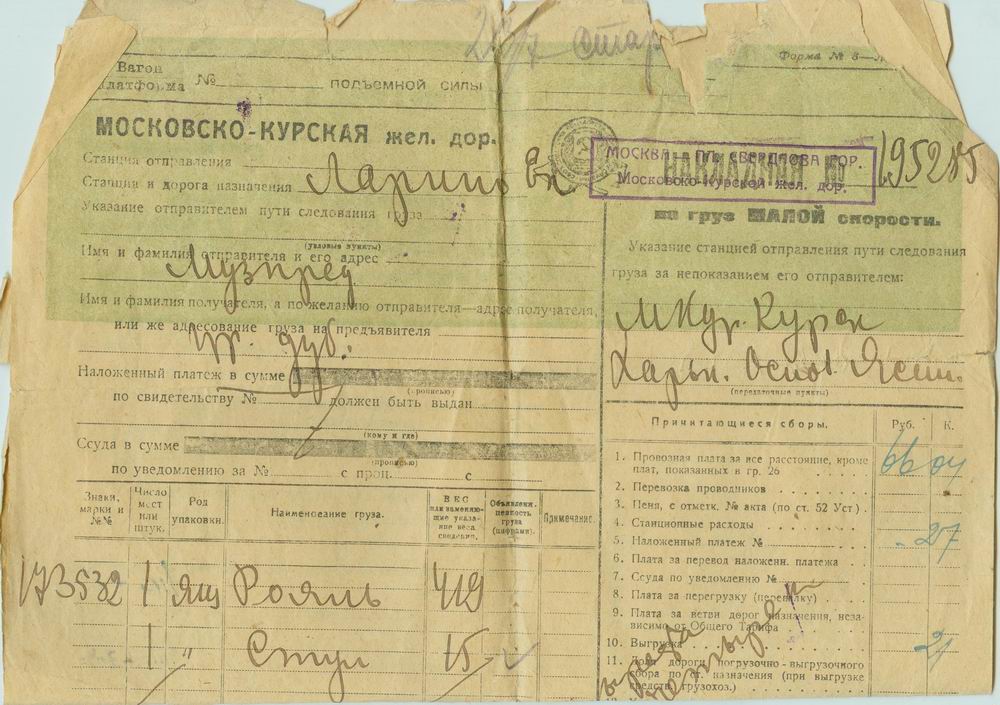 Форма № 8—
Вагон
Платформа № подъемной силы
МОСКОВСКО-КУРСКАЯ жел. дор.
НАКЛАДНАЯ № 195215
МОСКВА-ПЛ. СВЕРДЛОВА ГОР.
Московско-Курской жел. дор.
на груз МАЛОЙ скорости.
Станция отправления
Станции и дорога назначения Ларино Ек
Указание отправителем пути следования груза
(узловые пункты)
Имя и фамилия отправителя и его адрес
Музпред
Имя и фамилия получателя, а по желанию отправителя—адрес получателя,
или же адресование груза на предъявителя
пр. дуб.
Наложенный платеж в сумме
(прописью)
по свидетельству № должен быть выдан
(кому и где)
Ссуда в сумме
(прописью)
по уведомлению за № с проц. с
Указание станцией отправления пути следования
груза за непоказанием его отправителем:
МКур. Курск
Харьк. Основ. Ясин.
(передаточные пункты)
Знаки, марки и №№
Число мест или штук.
Род упаковки.
Наименование груза.
ВЕС или заменяющие указание веса сведения.
Объявленн. ценность груза (цифрами).
Примечание.
173532 1 ящ Рояль 419
1 " Стул 15
Причитающиеся сборы. Руб. К.
1. Провозная плата за все расстояние, кроме
плат, показанных в гр. 26 66 04
2. Перевозка проводников
3. Пеня, с отметк. № акта (по ст. 52 Уст).
4. Станционные расходы
5. Наложенный платеж № 27
6. Плата за перевод наложенн. платежа
7. Ссуда по уведомлению №
8. Плата за перегрузку (перевалку)
9. Плата за ветви дорог назначения, неза-
висимо от Общего Тарифа
10. Выгрузка 21
11. Доля дороги погрузочно-выгрузочного
сбора по ст. назначения (при выгрузке
средств. грузохоз.)